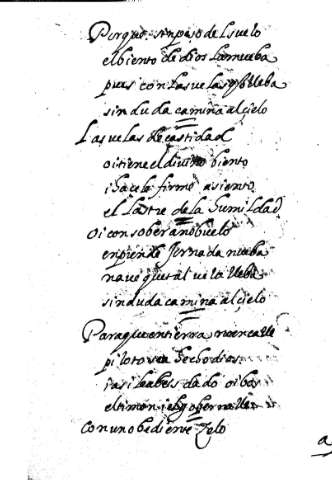 Porque sin paso del suelo
el biento de dios la mueba
pues con las velas q lleba
sin duda camina al çielo
Las velas de castidad
oi tiene el divino biento
i haçele firme asiento
el lastre de la humildad
Oi con soberano buelo
enpiende Jornada nueba
nave que tal vela lleba
sin duda camina al çielo
Para que en tierra no encalle
piloto sea hecho dios
i asi le abeis dado oi bos
el timon
Con un obediente Zelo
a